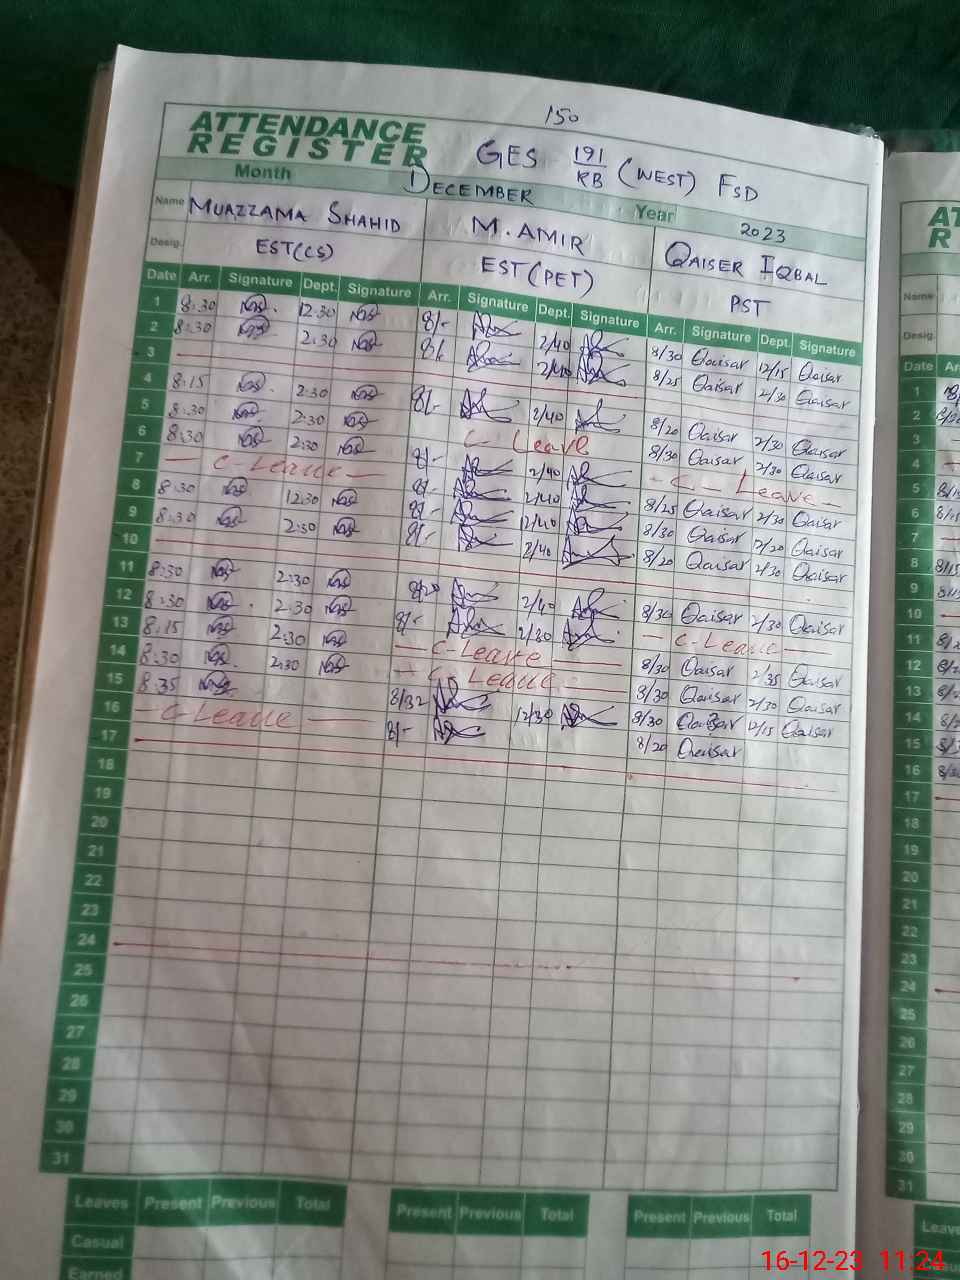 150
ATTENDANCE
REGISTER
GES 191/RB (WEST) FSD
Month DECEMBER Year 2023
Name MUAZZAMA SHAHID M. AMIR QAISER IQBAL
Desig. EST(CS) EST(PET) PST
Date Arr. Signature Dept. Signature Arr. Signature Dept. Signature Arr. Signature Dept. Signature
1 8:30 12:30 8/- 2/40 8/30 Qaisar 12/15 Qaisar
2 8:30 2:30 8/- 2/40 8/25 Qaisar 2/30 Qaisar
3
4 8:15 2:30 8/- 2/40 8/20 Qaisar 2/30 Qaisar
5 8:30 2:30 C- Leave 8/30 Qaisar 2/30 Qaisar
6 8:30 2:30 8/- 2/40 - C - Leave -
7 - C-Leave - 8/- 2/40 8/25 Qaisar 2/30 Qaisar
8 8:30 12:30 8/- 12/40 8/30 Qaisar 12/20 Qaisar
9 8:30 2:30 8/- 2/40 8/20 Qaisar 2/30 Qaisar
10
11 8:30 2:30 8/20 2/40 8/30 Qaisar 2/30 Qaisar
12 8:30 2:30 8/- 2/30 - C-Leave -
13 8:15 2:30 - C-Leave - 8/30 Qaisar 2/35 Qaisar
14 8:30 2:30 - C-Leave - 8/30 Qaisar 2/30 Qaisar
15 8:35 8/32 12/30 8/30 Qaisar 12/15 Qaisar
16 - C-Leave - 8/- 8/20 Qaisar
17
18
19
20
21
22
23
24
25
26
27
28
29
30
31
Leaves Present Previous Total Present Previous Total Present Previous Total
Casual
Earned
AT
R
Name
Desig.
Date
1
2
3
4
5
6
7
8
9
10
11
12
13
14
15
16
17
18
19
20
21
22
23
24
25
26
27
28
29
30
31
16-12-23 11:24